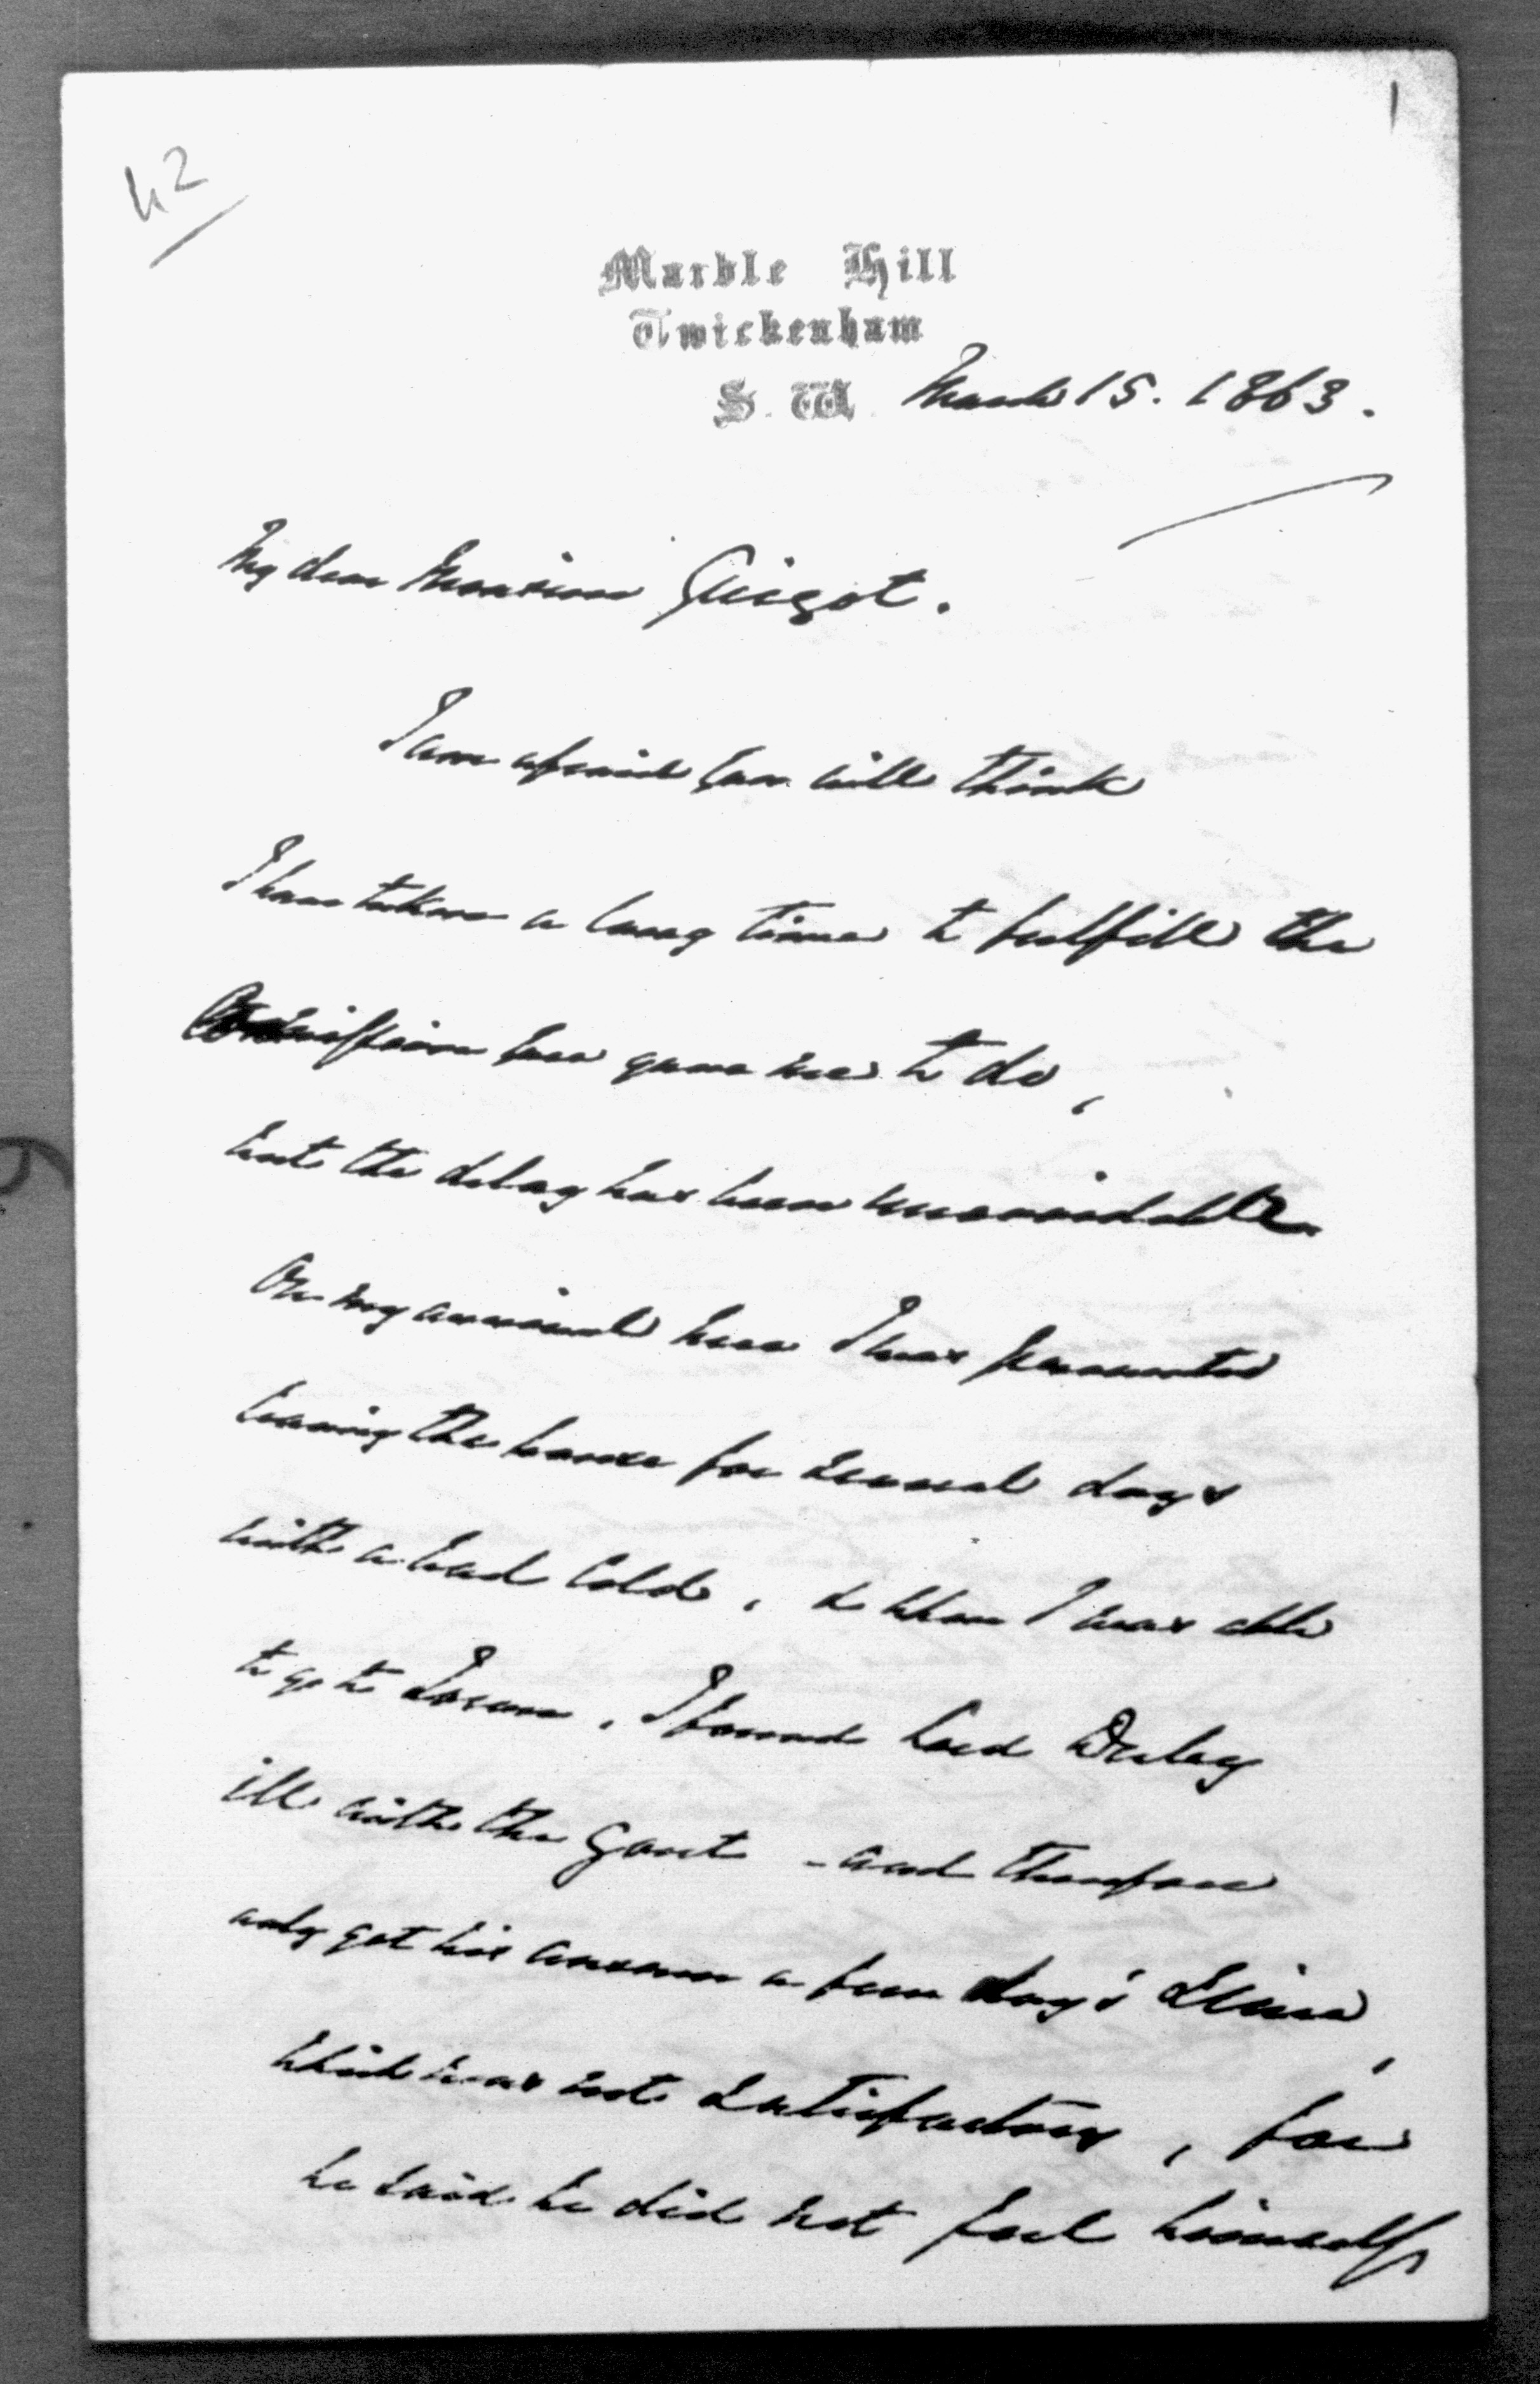 42
1
Marble Hill
Twickenham
S. W. March 15. 1863.
My dear Monsieur Guizot.
I am afraid you will think
I have taken a long time to fulfill the
Comission you gave me to do,
but the delay has been unavoidable
On my arrival here I was prevented
leaving the house for several days
with a bad Cold, & when I was able
to go to Town, I found Lord
ill with the Gout - and therefore
only got his answer a few days since,
which was not satisfactory, for
he said he did not feel himself